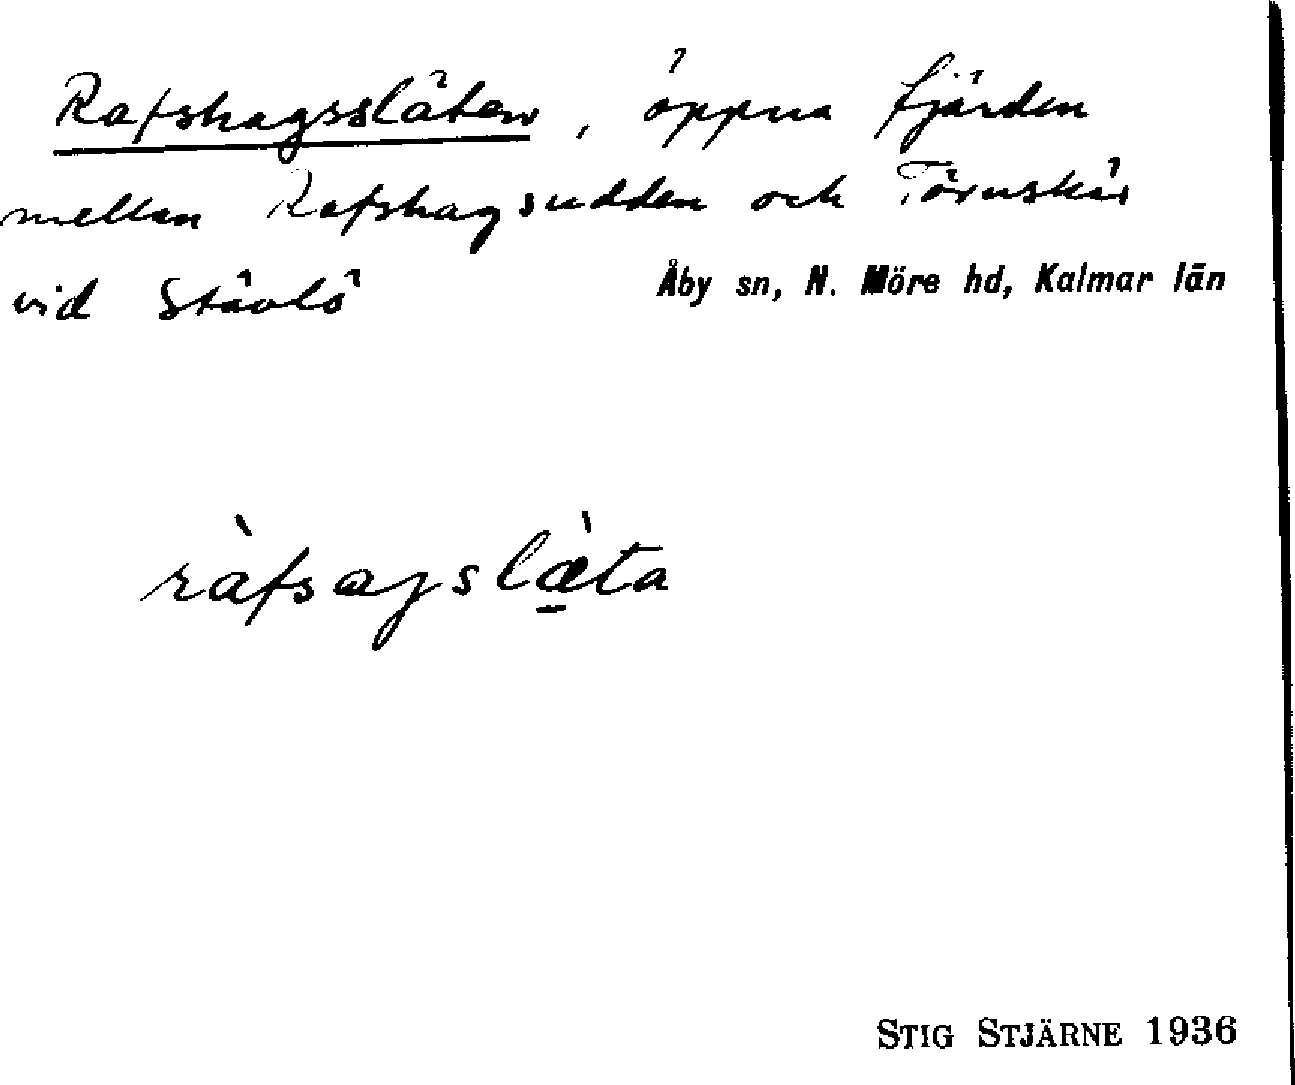 Rafshagssläten, öppna fjärden
mellan Rafshagsudden och Törnskär
vid Stävlö Åby sn, N. Möre hd, Kalmar län
ràfsagslæ̠̀ta
STIG STJÄRNE 1936